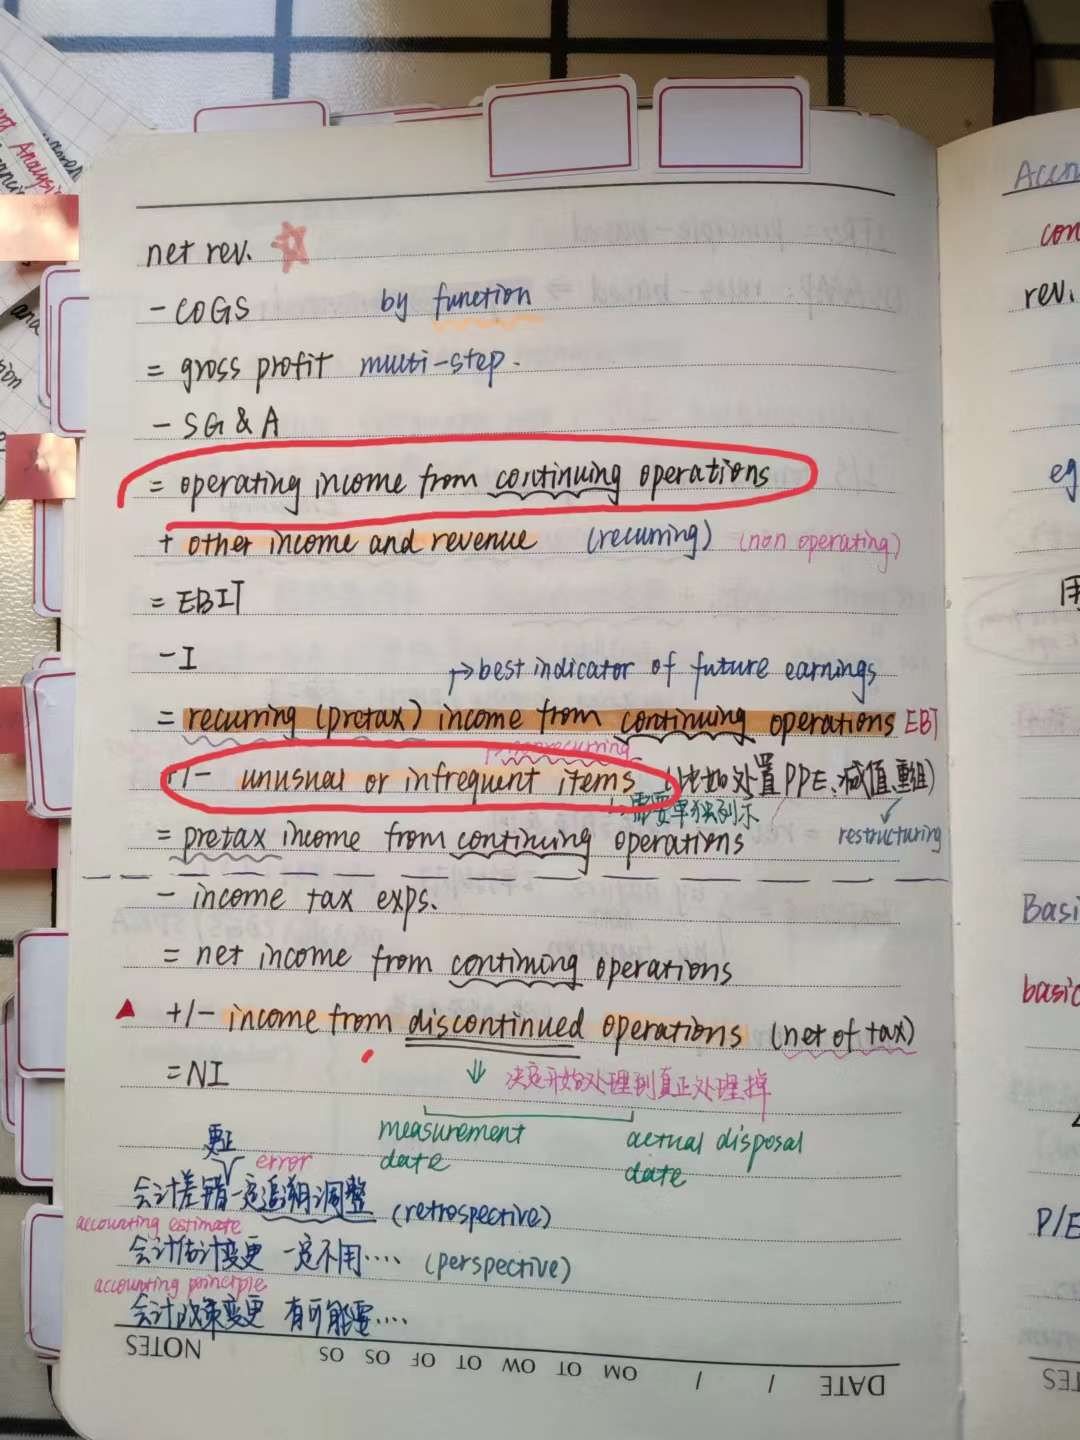 net rev.
- COGS by function
= gross profit multi-step.
- SG & A
= operating income from continuing operations
+ other income and revenue (recurring) (non operating)
= EBIT
- I
→ best indicator of future earnings
= recurring (pretax) income from continuing operations EBT
→ nonrecurring
+/- unusual or infrequent items (比如处置PPE、减值、重组)
需要单独列示
restructuring
= pretax income from continuing operations
- income tax exps.
= net income from continuing operations
+/- income from discontinued operations (net of tax)
= NI
决定开始处理到真正处理掉
measurement date
actual disposal date
更正
error
会计差错一定追溯调整 (retrospective)
accounting estimate
会计估计变更 一定不用.... (perspective)
accounting principle
会计政策变更 有可能要....
NOTES
OM OT OW OT OF OS OS
DATE / /
Analysis
and
Accn
con
rev.
eg
用
Basi
basic
P/E